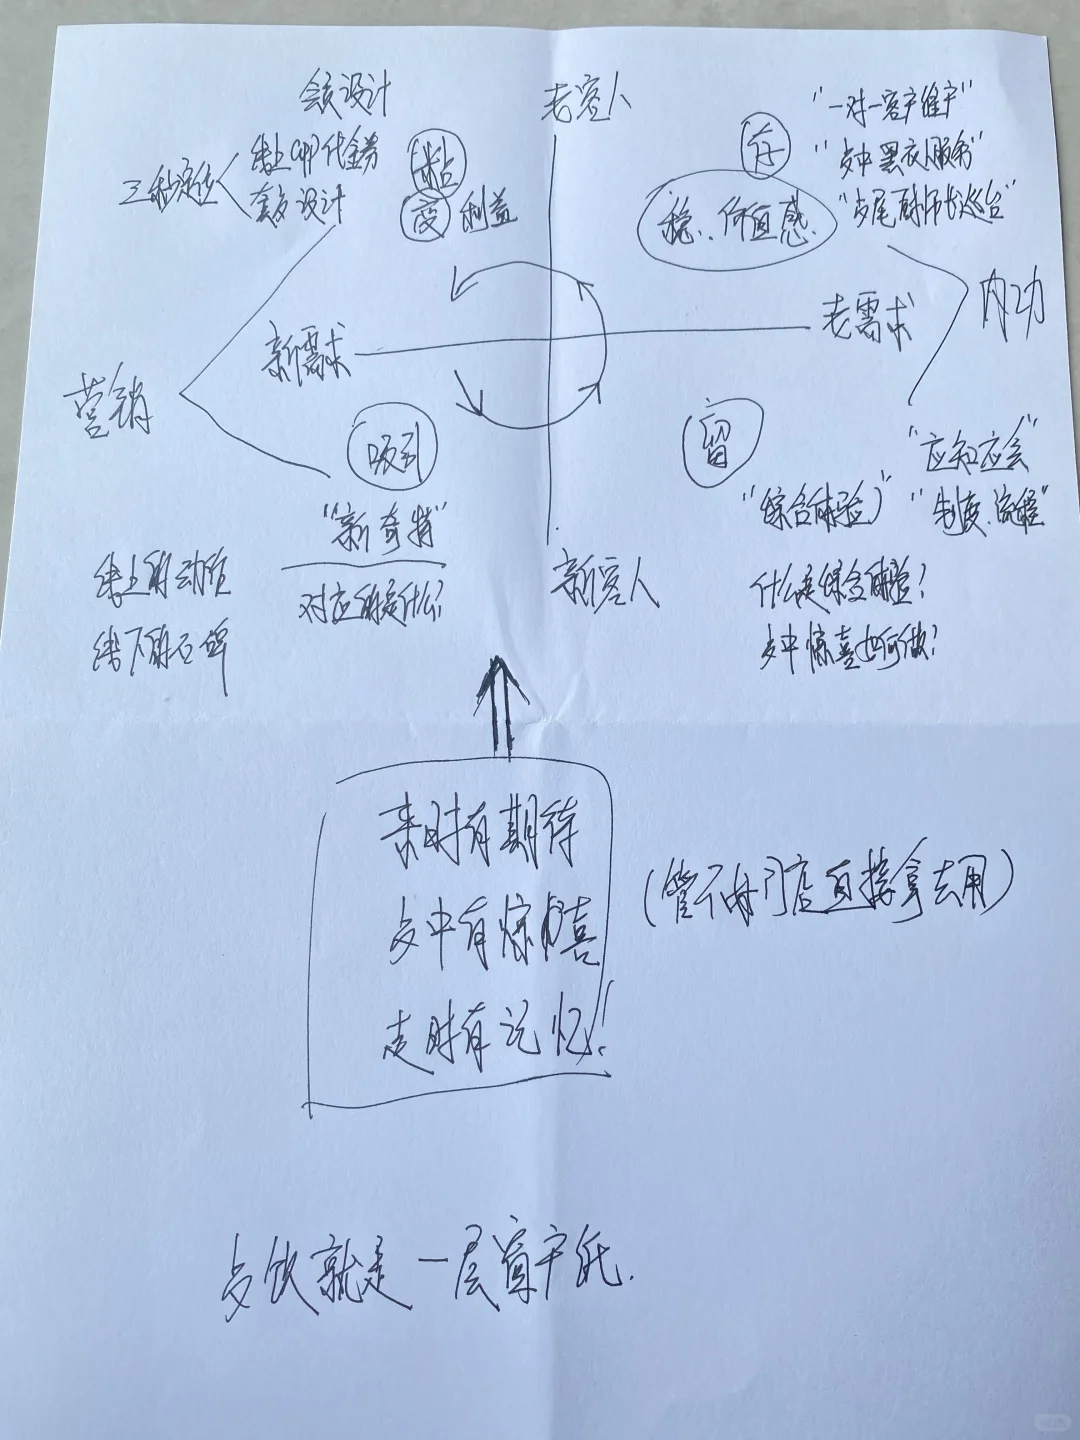 会员设计
老客人
"一对一客户维护"
线上app代金券
粘
存
"乡中黑衣服务"
三种通位
套名设计
变 利益
稳、价值感
"乡尾厨师长巡台"
内功
新需求
老需求
营销
吸引
留
"应知应会"
"新奇特"
"综合体验"
"制度、流程"
线上的动作
对应的是什么?
新客人
什么是综合体验?
线下的口碑
乡中惊喜如何做?
来时有期待
乡中有惊喜
(管不好门店直接拿去用)
走时有记忆!
乡饮就是一层窗户纸.